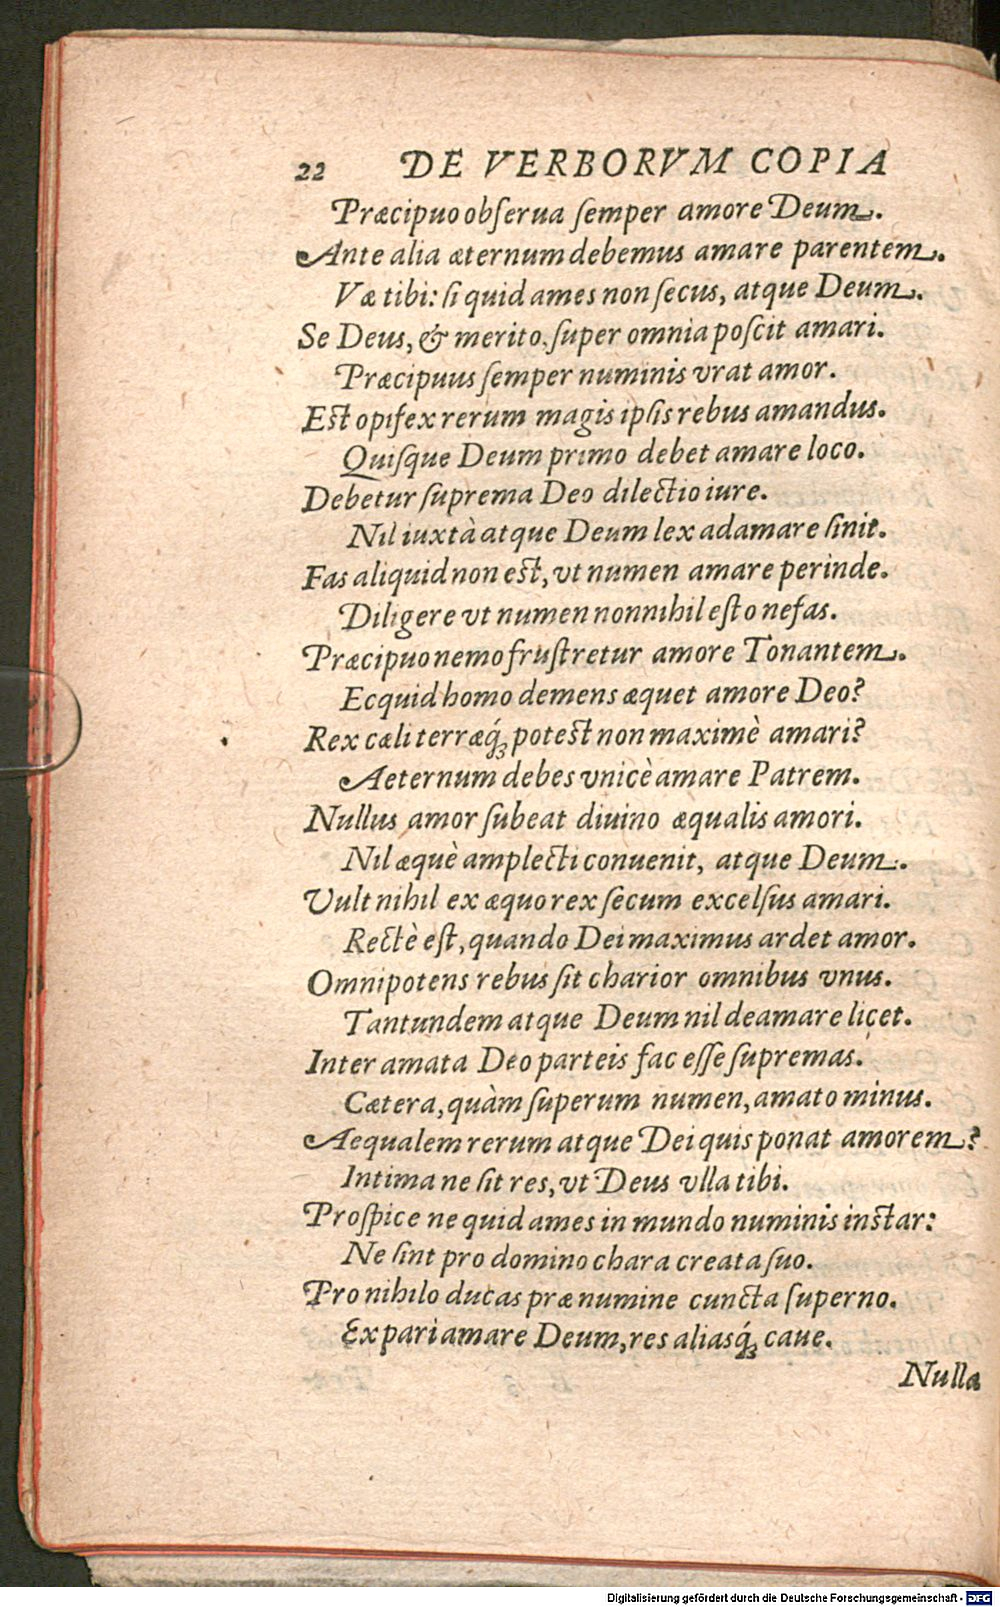 22 DE VERBORVM COPIA
Præcipuo obſerua ſemper amore Deum.
Ante alia æternum debemus amare parentem.
Væ tibi: ſi quid ames non ſecus, atque Deum.
Se Deus, & merito, ſuper omnia poſcit amari.
Præcipuus ſemper numinis vrat amor.
Eſt opifex rerum magis ipſis rebus amandus.
Quiſque Deum primo debet amare loco.
Debetur ſuprema Deo dilectio iure.
Nil iuxtà atque Deum lex adamare ſinit.
Fas aliquid non eſt, vt numen amare perinde.
Diligere vt numen nonnihil eſto nefas.
Præcipuo nemo fruſtretur amore Tonantem.
Ecquid homo demens æquet amore Deo?
Rex cæli terræq́ꝫ poteſt non maximè amari?
Aeternum debes vnicè amare Patrem.
Nullus amor ſubeat diuino æqualis amori.
Nil æquè amplecti conuenit, atque Deum.
Vult nihil ex æquo rex ſecum excelſus amari.
Rectè eſt, quando Dei maximus ardet amor.
Omnipotens rebus ſit charior omnibus vnus.
Tantundem atque Deum nil deamare licet.
Inter amata Deo parteis fac eſſe ſupremas.
Cætera, quàm ſuperum numen, amato minus.
Aequalem rerum atque Dei quis ponat amorem?
Intima ne ſit res, vt Deus vlla tibi.
Proſpice ne quid ames in mundo numinis inſtar:
Ne ſint pro domino chara creata ſuo.
Pro nihilo ducas præ numine cuncta ſuperno.
Ex pari amare Deum, res aliasq́ꝫ caue.
Nulla
Digitalisierung gefördert durch die Deutsche Forschungsgemeinschaft - DFG